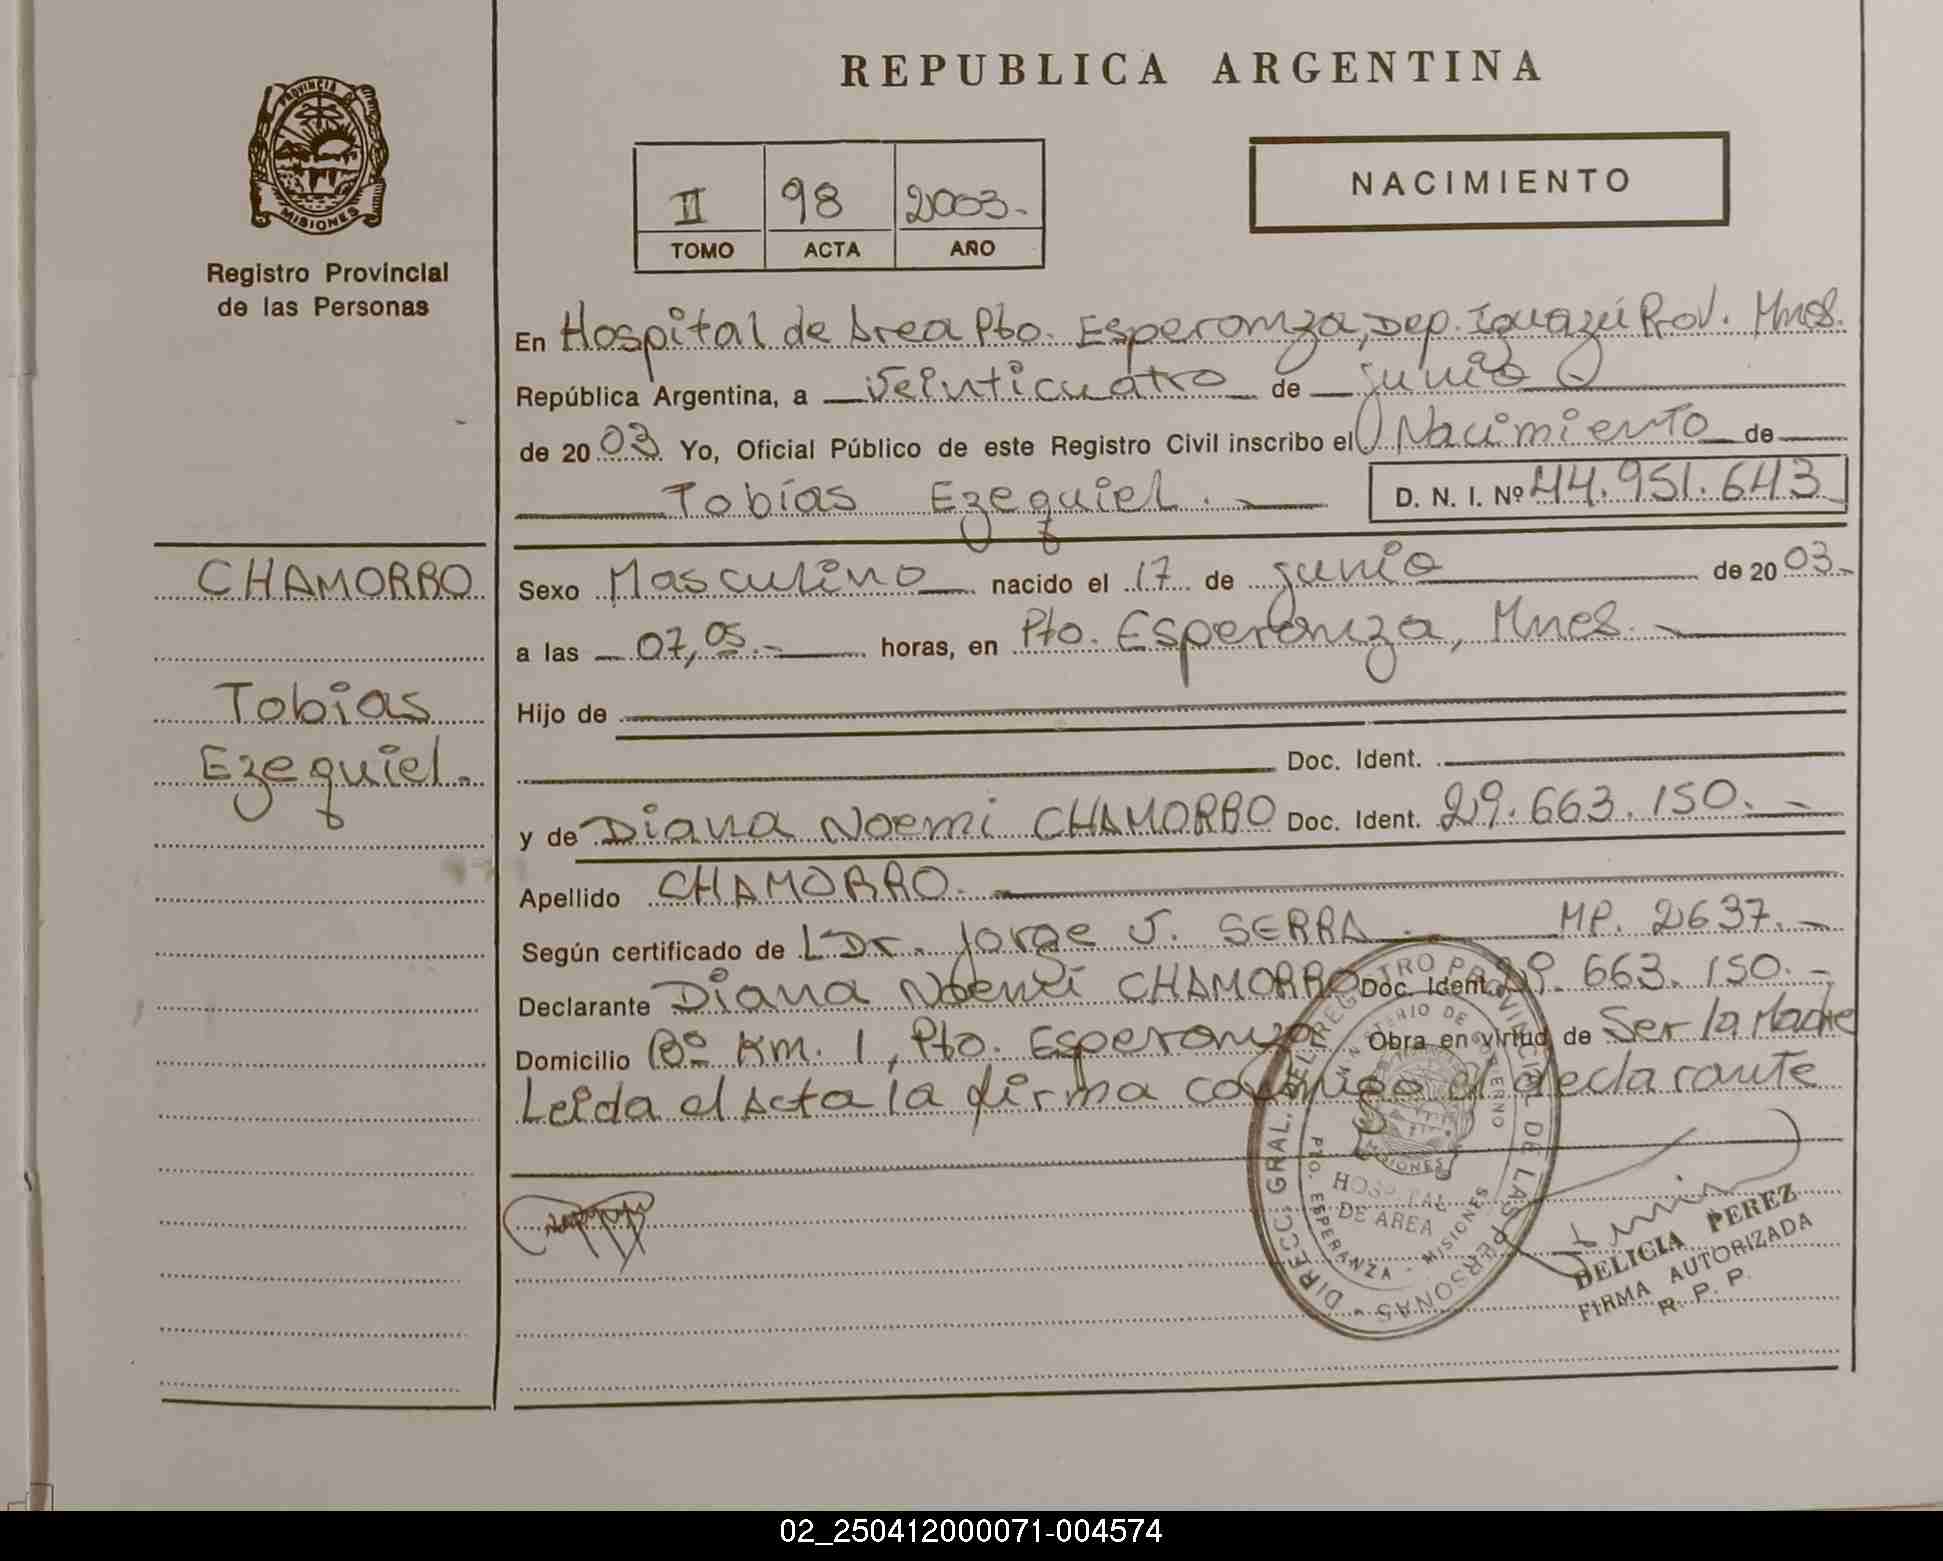 REPUBLICA ARGENTINA
PROVINCIA DE
MISIONES
Registro Provincial
de las Personas
II 98 2003.-
TOMO ACTA AÑO
NACIMIENTO
En Hospital de Area Pto. Esperanza, Dep. Iguazú Prov. Mnes.
República Argentina, a veinticuatro de junio
de 2003 Yo, Oficial Público de este Registro Civil inscribo el Nacimiento de
Tobías Ezequiel.
D. N. I. Nº 44.951.643
CHAMORRO
Tobias
Ezequiel.
Sexo Masculino nacido el 17 de junio de 2003.-
a las 07,05.- horas, en Pto. Esperanza, Mnes.
Hijo de
Doc. Ident.
y de Diana Noemi CHAMORRO Doc. Ident. 29.663.150.-
Apellido CHAMORRO.
Según certificado de Dr. Jorge J. SERRA. MP. 2637.-
Declarante Diana Noemi CHAMORRO Doc. Ident. 29.663.150.-
Domicilio Bº Km. 1, Pto. Esperanza Obra en virtud de Ser la Madre
Leida el Acta la firma conmigo el declarante
DIRECC. GRAL. DEL REGISTRO PROVINCIAL DE LAS PERSONAS
MINISTERIO DE GOBIERNO
MISIONES
HOSPITAL
DE AREA
PTO. ESPERANZA - MISIONES
DELICIA PEREZ
FIRMA AUTORIZADA
R. P. P.
02_250412000071-004574